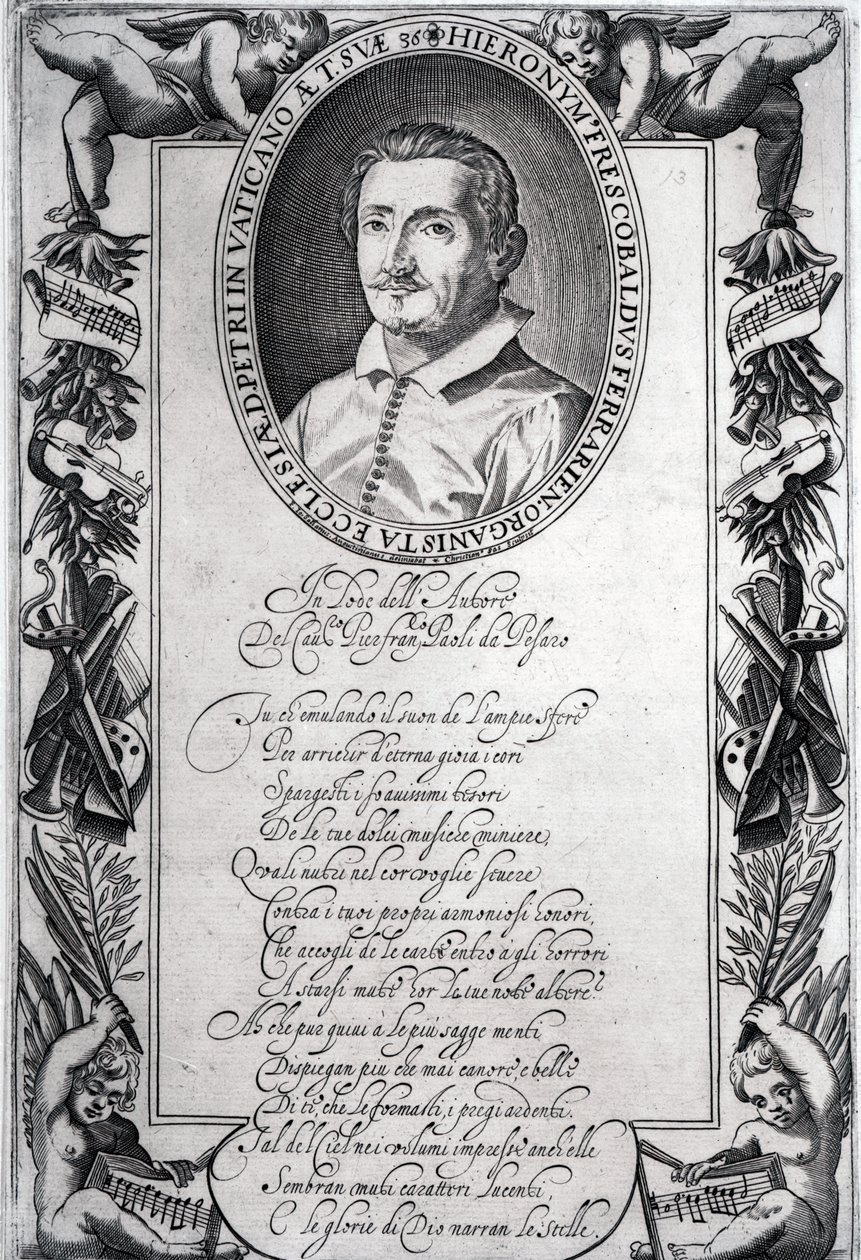 HIERONYM’ FRESCOBALDVS FERRARIEN. ORGANISTA ECCLESIÆ D. PETRI IN VATICANO ÆT. SVÆ 36
Christian’ Sas Sculpsit
13
In Lode dell' Autore
Del Cau.ro Pierfran.co Paoli da Pesaro
Tu, ch'emulando il suon de l'ampie sfere
Per arrichir d'eterna gioia i cori
Spargesti i soauissimi tesori
De le tue dolci musiche miniere,
Quali nutri nel cor voglie seuere
Contra i tuoi propri armoniosi honori,
Che accogli de le carte entro à gli horrori
A starsi mute hor le tue note altere?
Ah che pur quiui à le più sagge menti
Dispiegan più che mai canore, e belle
Di te, che le formasti, i pregi ardenti.
Tal del Ciel nei volumi impresse anch'elle
Sembran muti caratteri lucenti,
E le glorie di Dio narran le Stelle.